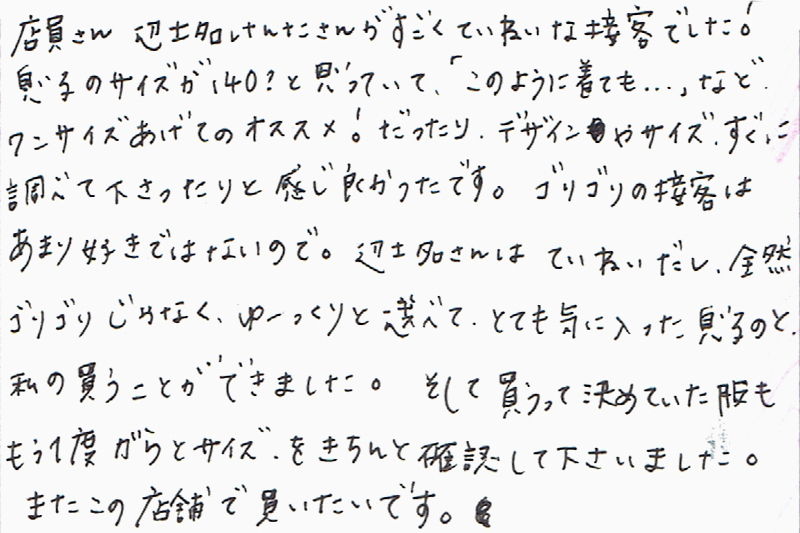 店員さん 辺土名さんがすごくていねいな接客でした!
息子のサイズが140?と思っていて、「このように着ても…」など
ワンサイズあげてのオススメ!だったり、デザインやサイズ、すぐに
調べて下さったりと感じ良かったです。ゴリゴリの接客は
あまり好きではないので。辺土名さんは ていねいだし、全然
ゴリゴリじゃなく、ゆーっくりと選べて、とても気に入った息子のと、
私の買うことができました。そして買うって決めていた服も
もう1度がらとサイズをきちんと確認して下さいました。
またこの店舗で買いたいです。